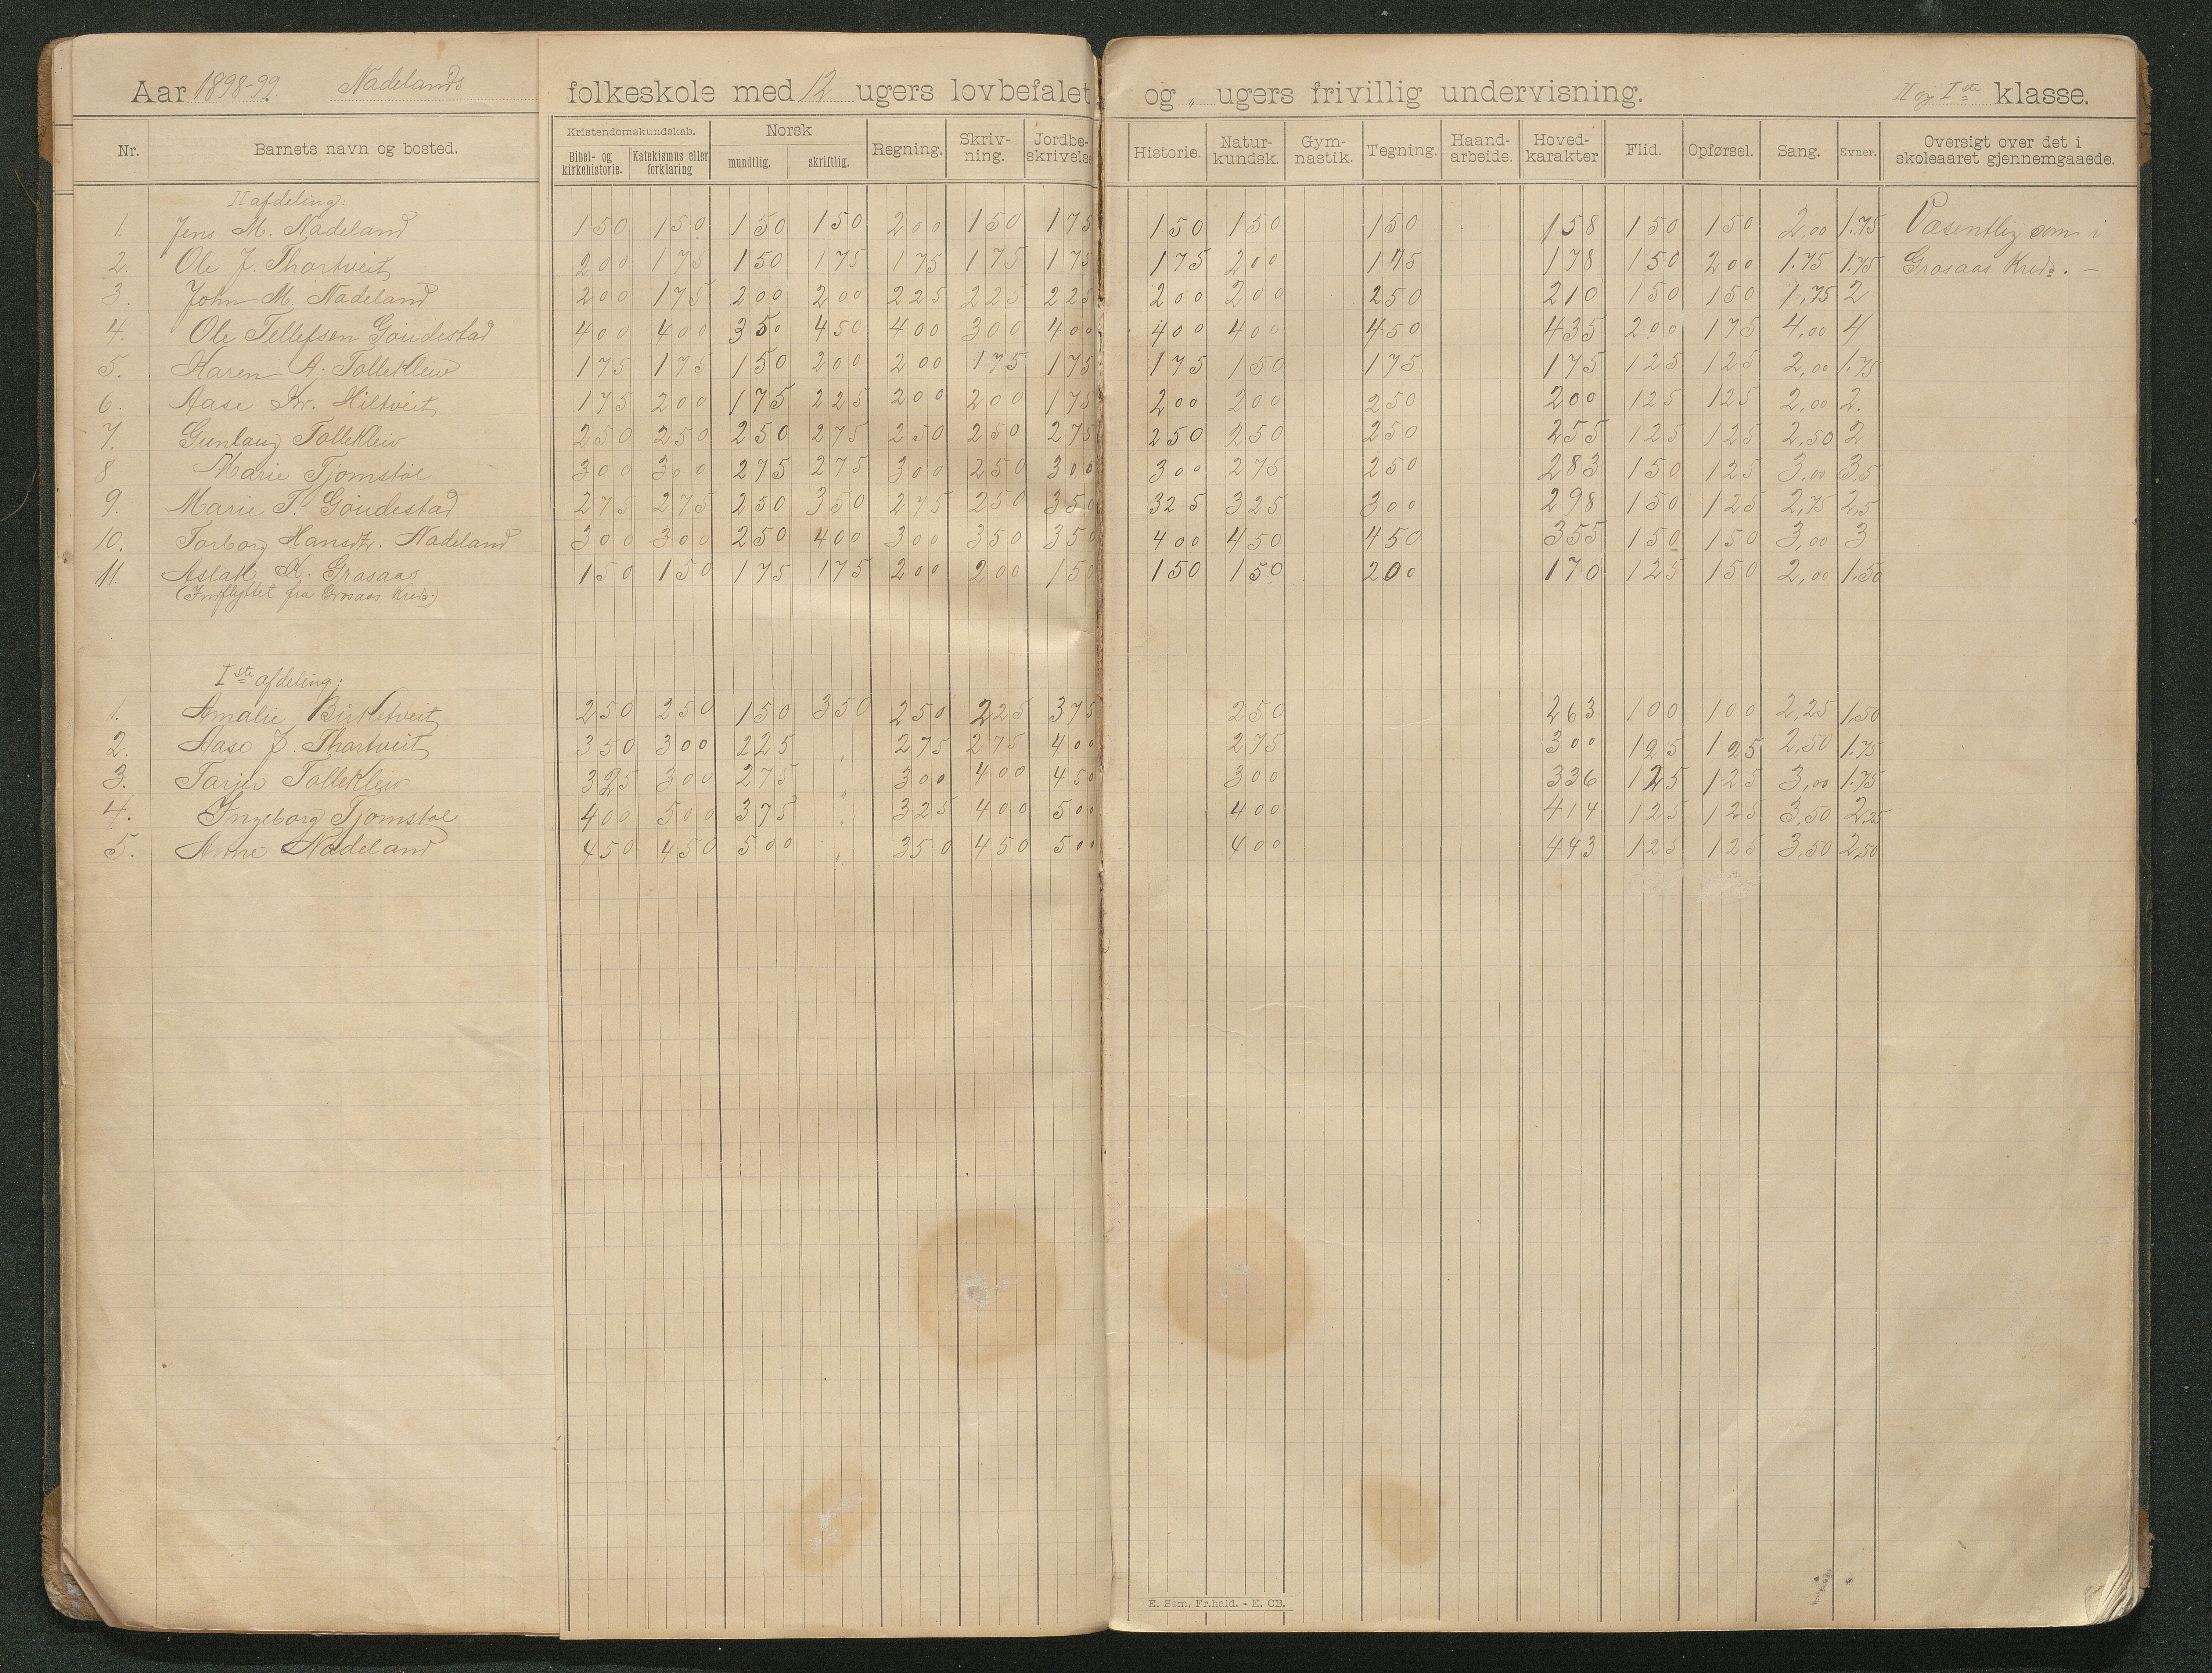 Aar 1898-99. Nadelands folkeskole med 12 ugers lovbefalet og „ ugers frivillig undervisning. II og I ste klasse.
Nr. Barnets navn og bosted. Kristendomskundskab. Bibel- og kirkehistorie. Katekismus eller forklaring Norsk mundtlig. skriftlig. Regning. Skriv-ning. Jordbe-skrivels Historie. Natur-kundsk. Gym-nastik. Tegning. Haand-arbeide. Hoved-karakter Flid. Opførsel. Sang. Evner. Oversigt over det i skoleaaret gjennemgaaede.
II afdeling:
1. Jens M. Nadeland 150 150 150 150 200 150 175 150 150 150 158 150 150 2,00 1.75 Væsentlig som i
2. Ole J. Thortveit 200 175 150 175 175 175 175 175 200 175 178 150 200 1.75 1.75 Grosaas Kreds. —
3. John M. Nadeland 200 175 200 200 225 225 225 200 200 250 210 150 150 1,75 2
4. Ole Tellefsen Goudestad 400 400 350 450 400 300 400 400 400 450 435 200 175 4,00 4
5. Karen A. Tollekleiv 175 175 150 200 200 1.75 175 175 150 175 175 125 125 2,00 1.75
6. Aase Kr. Hiltveit 175 200 175 225 200 200 175 200 200 250 200 125 125 2,00 2.
7. Gunlaug Tollekleiv 250 250 250 275 250 250 275 250 250 250 255 125 125 2,50 2
8 Marie Tjomstøl 300 300 275 275 300 250 300 300 275 250 283 150 125 3,00 3,5
9. Marie T. Goudestad 275 275 250 350 275 250 350 325 325 300 298 150 125 2,75 2,5
10. Torborg Hansdtr. Nadeland 300 300 250 400 300 350 350 400 450 450 355 150 150 3,00 3
11. Aslak K. Grosaas 150 150 175 175 200 200 150 150 150 200 170 125 150 2,00 1.50
(Indflyttet fra Grosaas Kreds.)
I ste afdeling:
1. Amalie Birketveit 250 250 150 350 250 225 375 250 263 100 100 2,25 1,50
2. Aase J. Thortveit 350 300 225 „ 275 275 400 275 300 125 125 2,50 1.75
3. Tarjer Tollekleiv 325 300 275 „ 300 400 450 300 336 125 125 3,00 1.75
4. Ingeborg Tjomstøl 400 500 375 „ 325 400 500 400 414 125 125 3,50 2,25
5. Anne Nadeland 450 450 500 „ 350 450 500 400 443 125 125 3,50 2,50
E. Sem, Fr.hald. - E. CB.